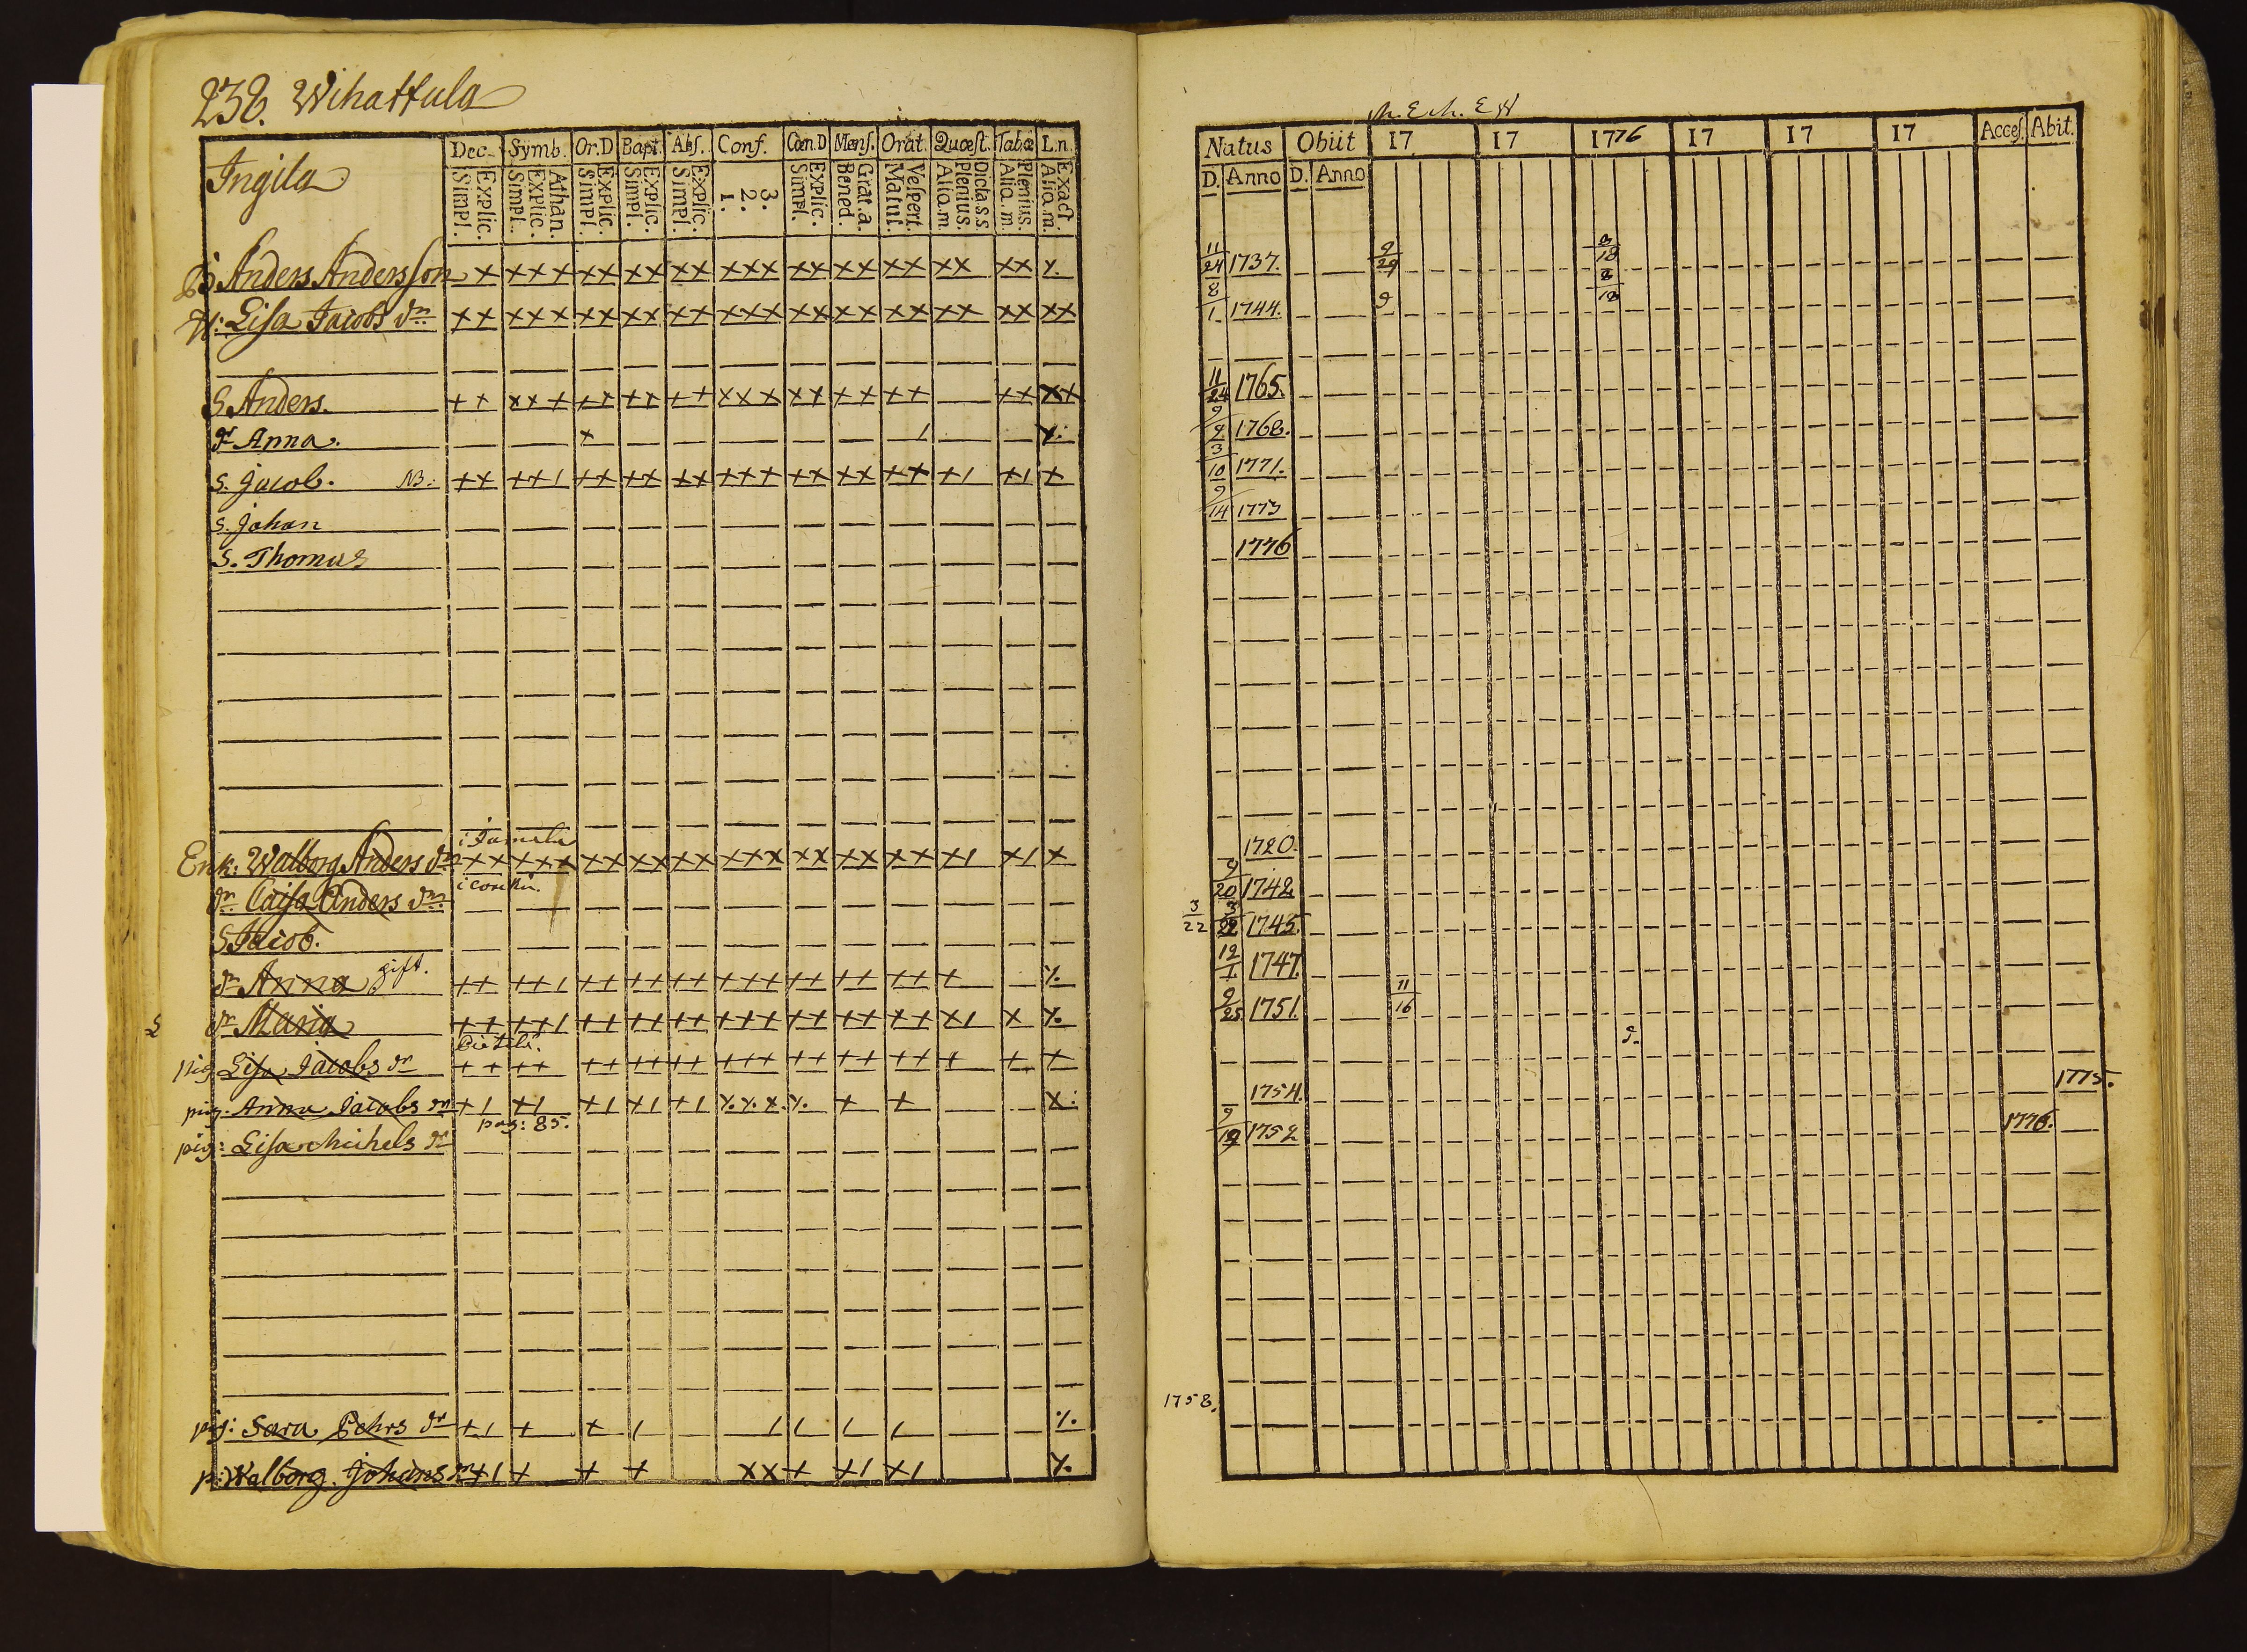 238. Wihattula
Ingila
Dec. Symb. Or.D Bapt. Abs. Conf. Cœn.D Mens. Orat. Quæst. Tabæ L.n.
Explic. Simpl. Athan. Explic. Simpl. Explic. Simpl. Explic. Simpl. Explic. Simpl. 3. 2. 1. Explic. Simpl. Grat.a. Bened. Vespert. Matut. Dicta s.s. Plenius. Aliq.m Plenius. Aliq.m Exact. Aliq.m.
B. Anders Andersson x xxx xx xx xx xxx xx xx xx xx xx ⁒
H: Lisa Jacobs dr xx xxx xx xx xx xxx xx xx xx xx xx xx
S Anders. ++ xx+ ++ ++ ++ xxx xx ++ ++ ++ xx
dr Anna. x / ⁒
S. Jacob. NB: ++ ++/ ++ ++ ++ +++ ++ ++ ++ +/ +/ +
S. Johan
S. Thomas
Enk: Walborg Anders dr xx xxx xx xx xx xxx xx xx xx x/ x/ x
dr Caisa Anders dr
S Jacob.
dr Anna gift. ++ ++/ ++ ++ ++ +++ ++ ++ ++ + ⁒
dr Maria ++ ++/ ++ ++ ++ +++ ++ ++ ++ x/ x ⁒
pig Lisa Jacobs dr ++ ++ ++ ++ ++ +++ ++ ++ ++ + + +
pig. Anna Jacobs dr +/ +/ +/ +/ +/ ⁒ ⁒ x ⁒ + + x:
pag: 85.
pig: Lisa Michels dr
pig: Sara Pehrs dr +/ + + / / / / / ⁒
p: Walborg Johans dr +/ + + + xx + +/ +/ ⁒
Natus Obiit 17 17 1776 17 17 17 Acces. Abit.
D. Anno D. Anno
11/24 1737. 9/29 3/18
8/1 1744. 9 8/18
11/24 1765.
9/9 1768.
3/10 1771.
9/14 1773
1776
1720.
9/20 1742
3/22 3/22 1745.
12/1 1747.
9/25 1751. 11/16
1754. 1775.
1752 1776.
1758.